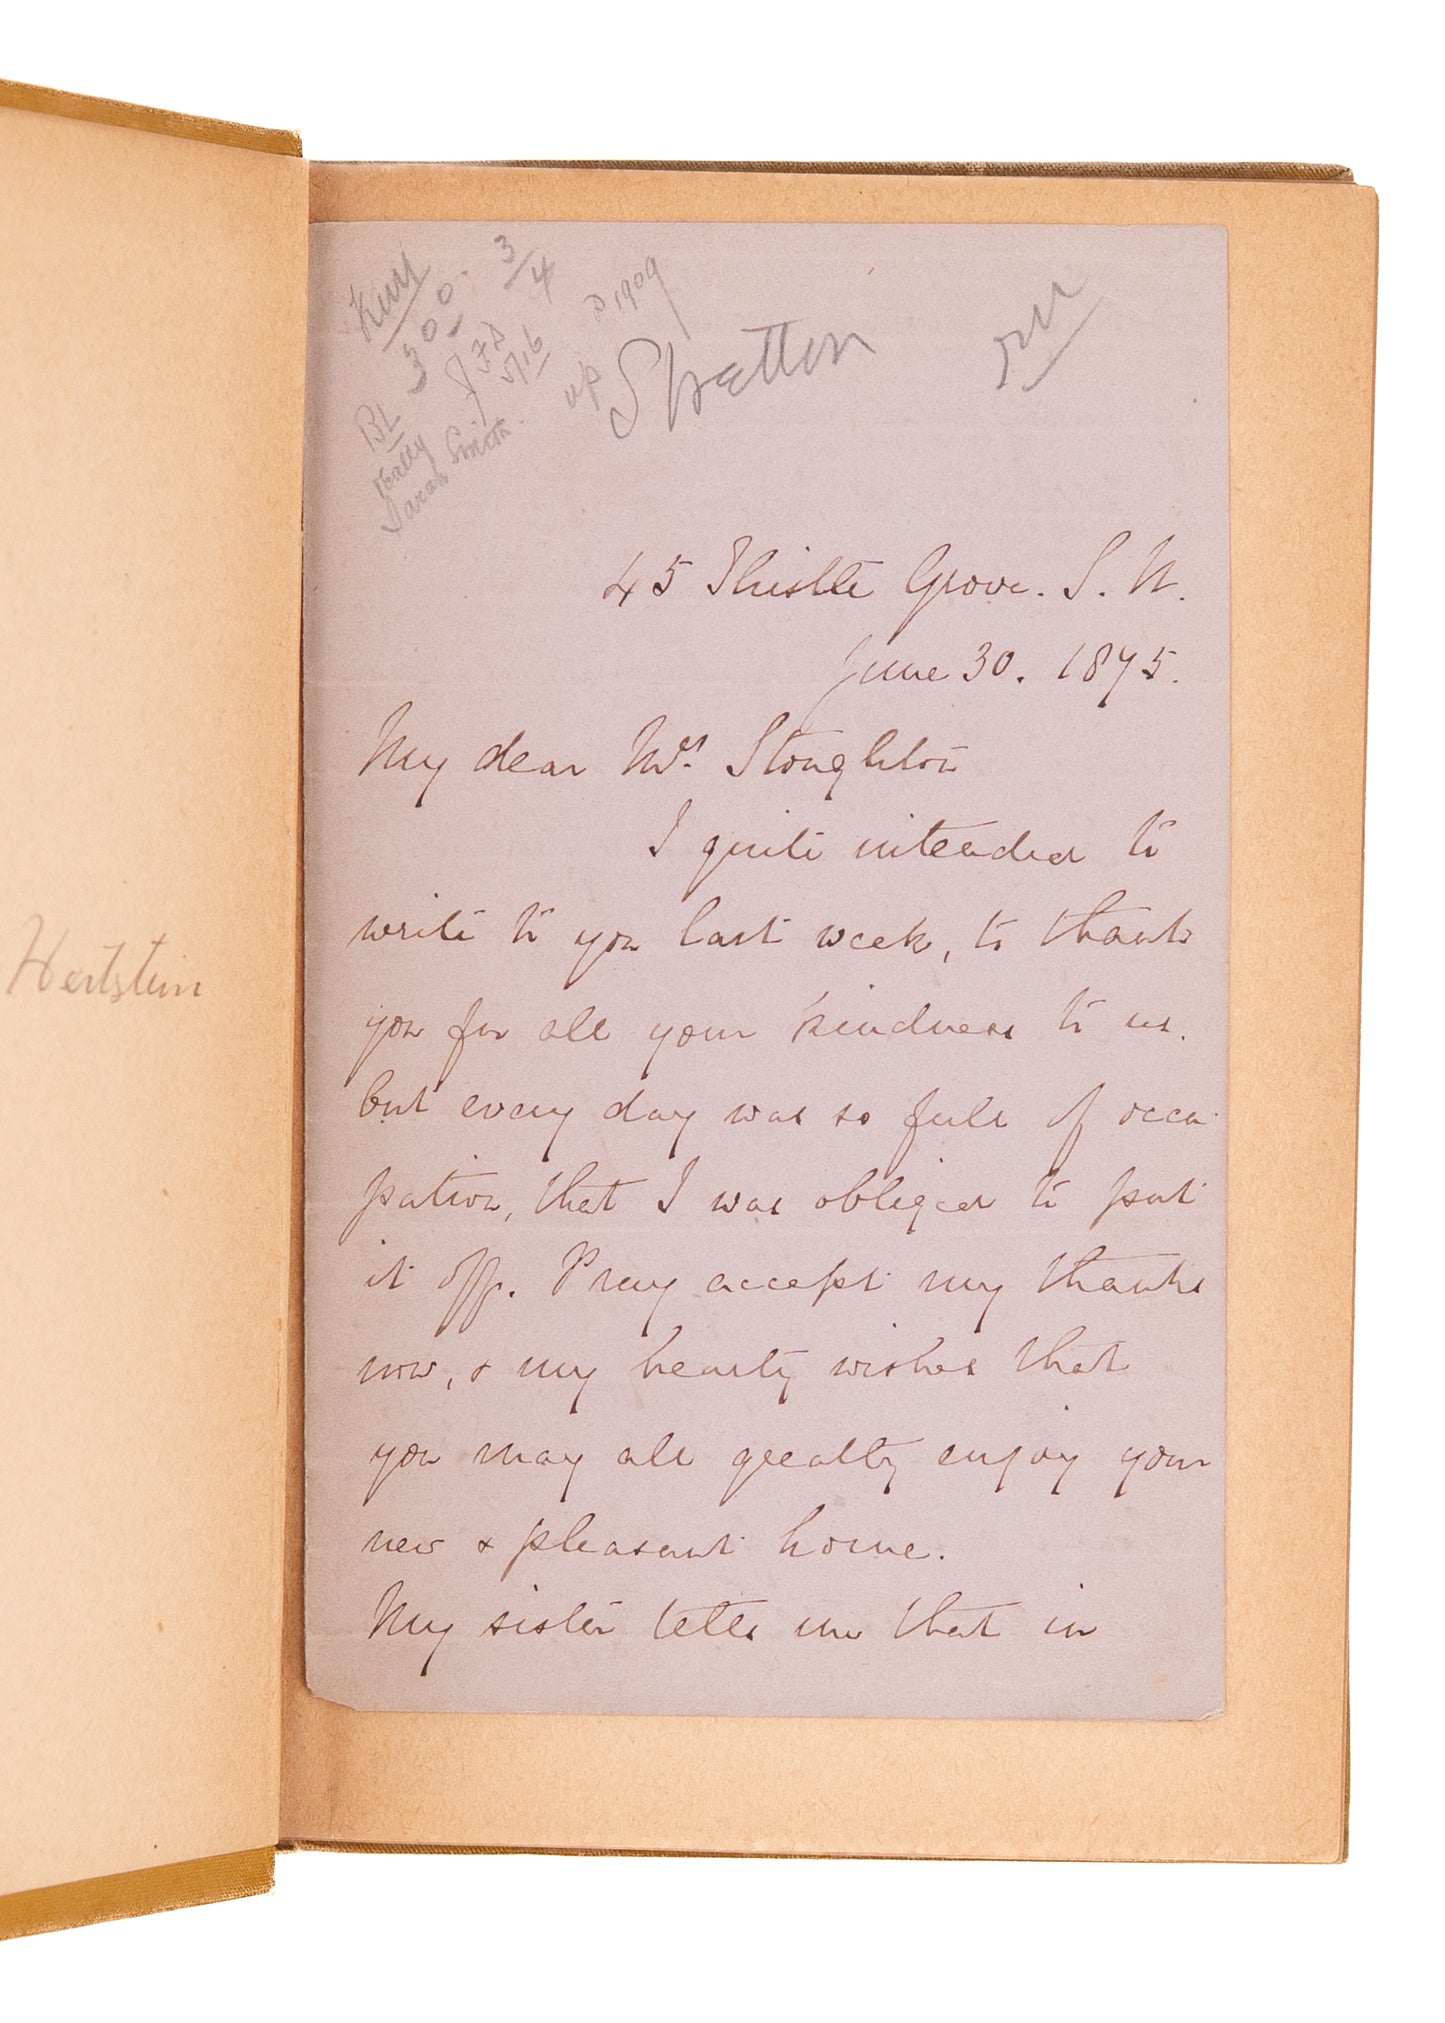 Hertstein
3/4
300
D 1909
Stretton
BL
really
Sarah Smith.
up
45 Thistle Grove. S. W.
June 30. 1875.
My dear Mrs. Stoughton
I quite intended to
write to you last week, to thank
you for all your kindness to us.
but every day was so full of occu
pation, that I was obliged to put
it off. Pray accept my thanks
now, & my hearty wishes that
you may all greatly enjoy your
new & pleasant home.
My sister tells me that in